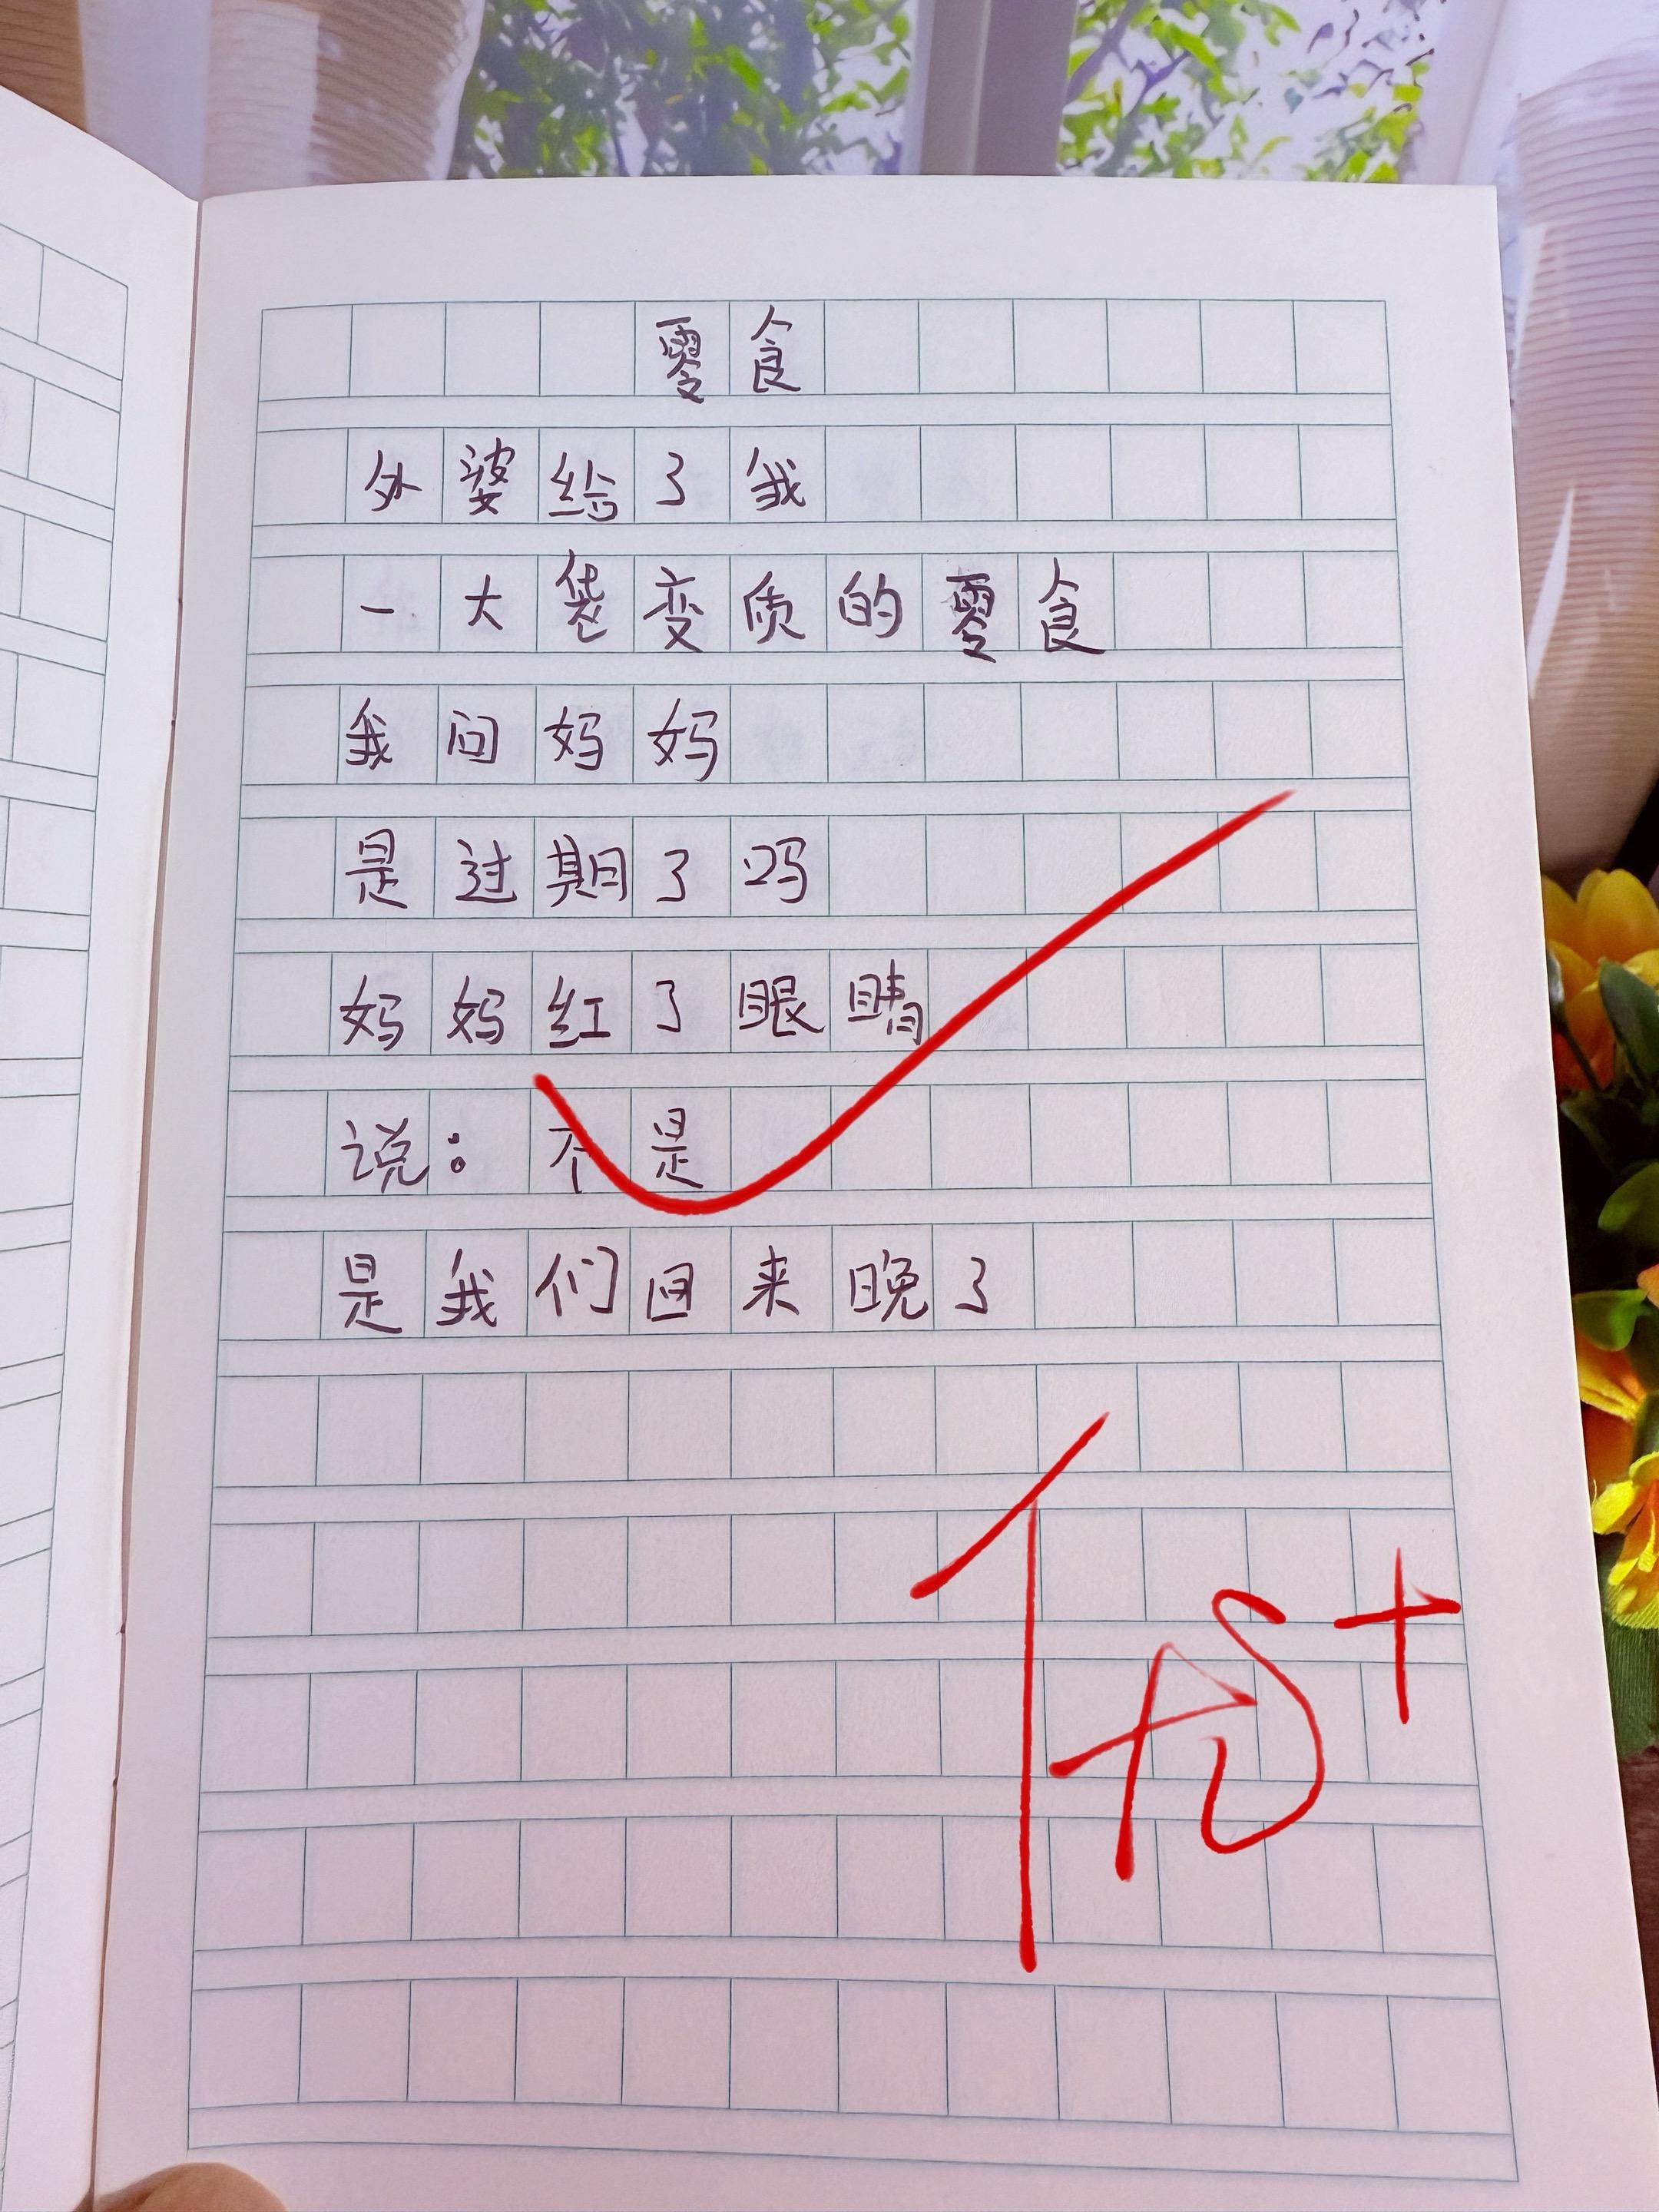 零食
外婆给了我
一大袋变质的零食
我问妈妈
是过期了吗
妈妈红了眼睛
说：不是
是我们回来晚了
优+